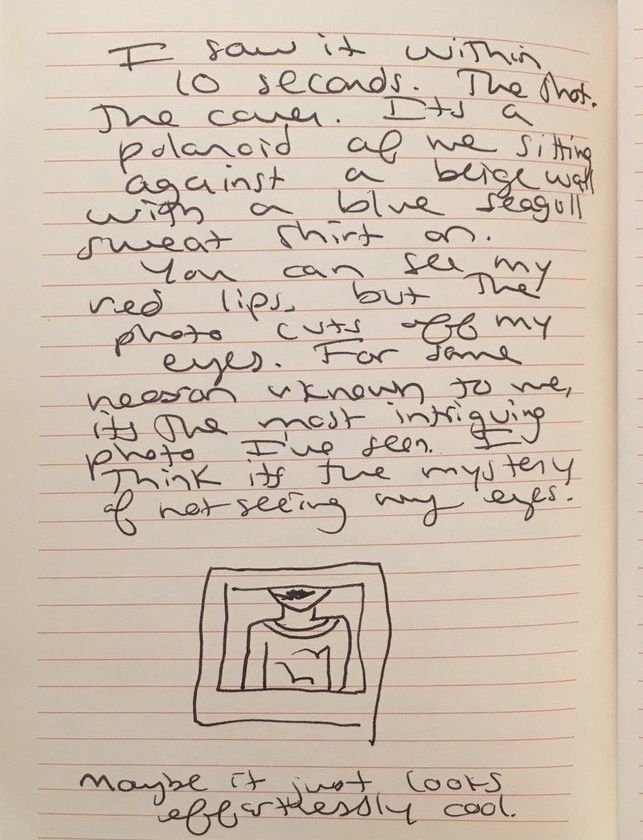 I saw it within
10 seconds. The Phot.
The cover. Its a
polaroid of me sitting
against a beige wall
with a blue seagull
sweat shirt on.
You can see my
red lips, but the
photo cuts off my
eyes. For some
reason uknown to me,
its the most intriguing
photo I've seen. I
Think its the mystery
of not seeing my eyes.
Maybe it just looks
effortlessly cool.